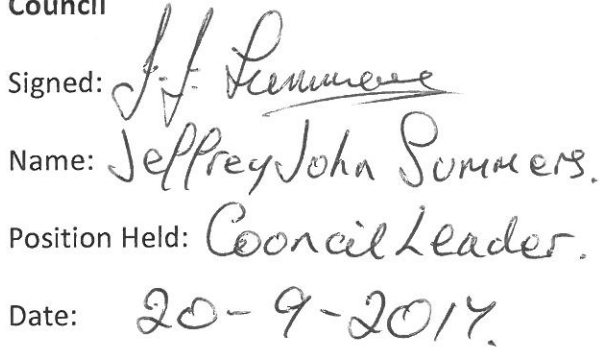 Council
Signed: J. J. Summers
Name: Jeffrey John Summers.
Position Held: Council Leader.
Date: 20-9-2017.